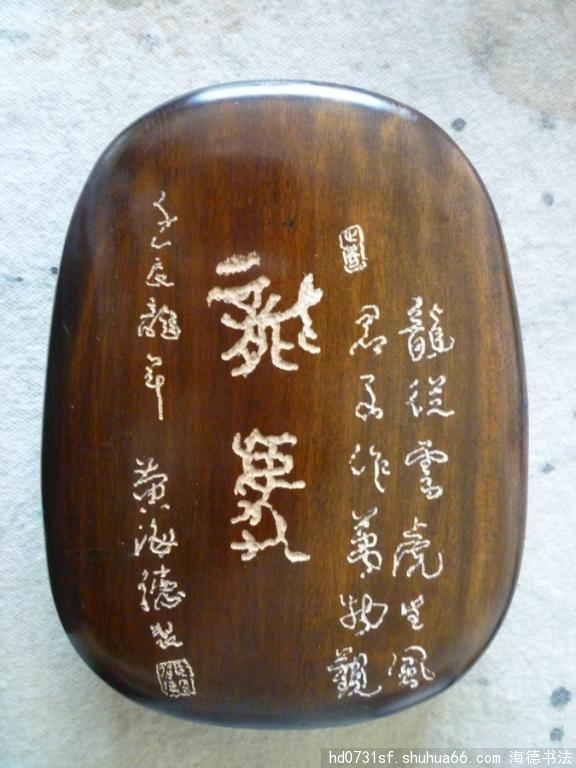 龍從雲虎生風
君子作萬物觀
龍
壬辰龍年 黃海德製
hd0731sf.shuhua66.com 海德书法